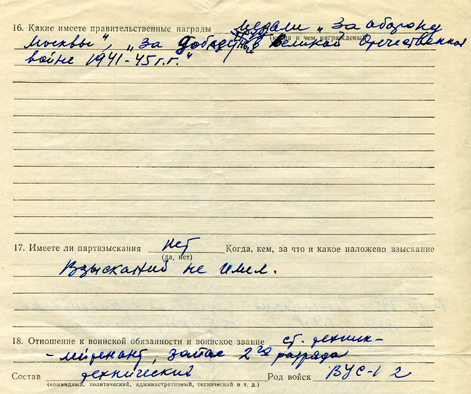 16. Какие имеете правительственные награды медали „За оборону
(когда и чем награждены)
Москвы", „За победу в Великой Отечественной
войне 1941-45 г.г."
17. Имеете ли партвзыскания нет Когда, кем, за что и какое наложено взыскание
(да, нет)
Взысканий не имел.
18. Отношение к воинской обязанности и воинское звание ст. техник-
-лейтенант, запас 2го разряда
Состав технический Род войск ВУС-12
(командный, политический, административный, технический и т. д.)